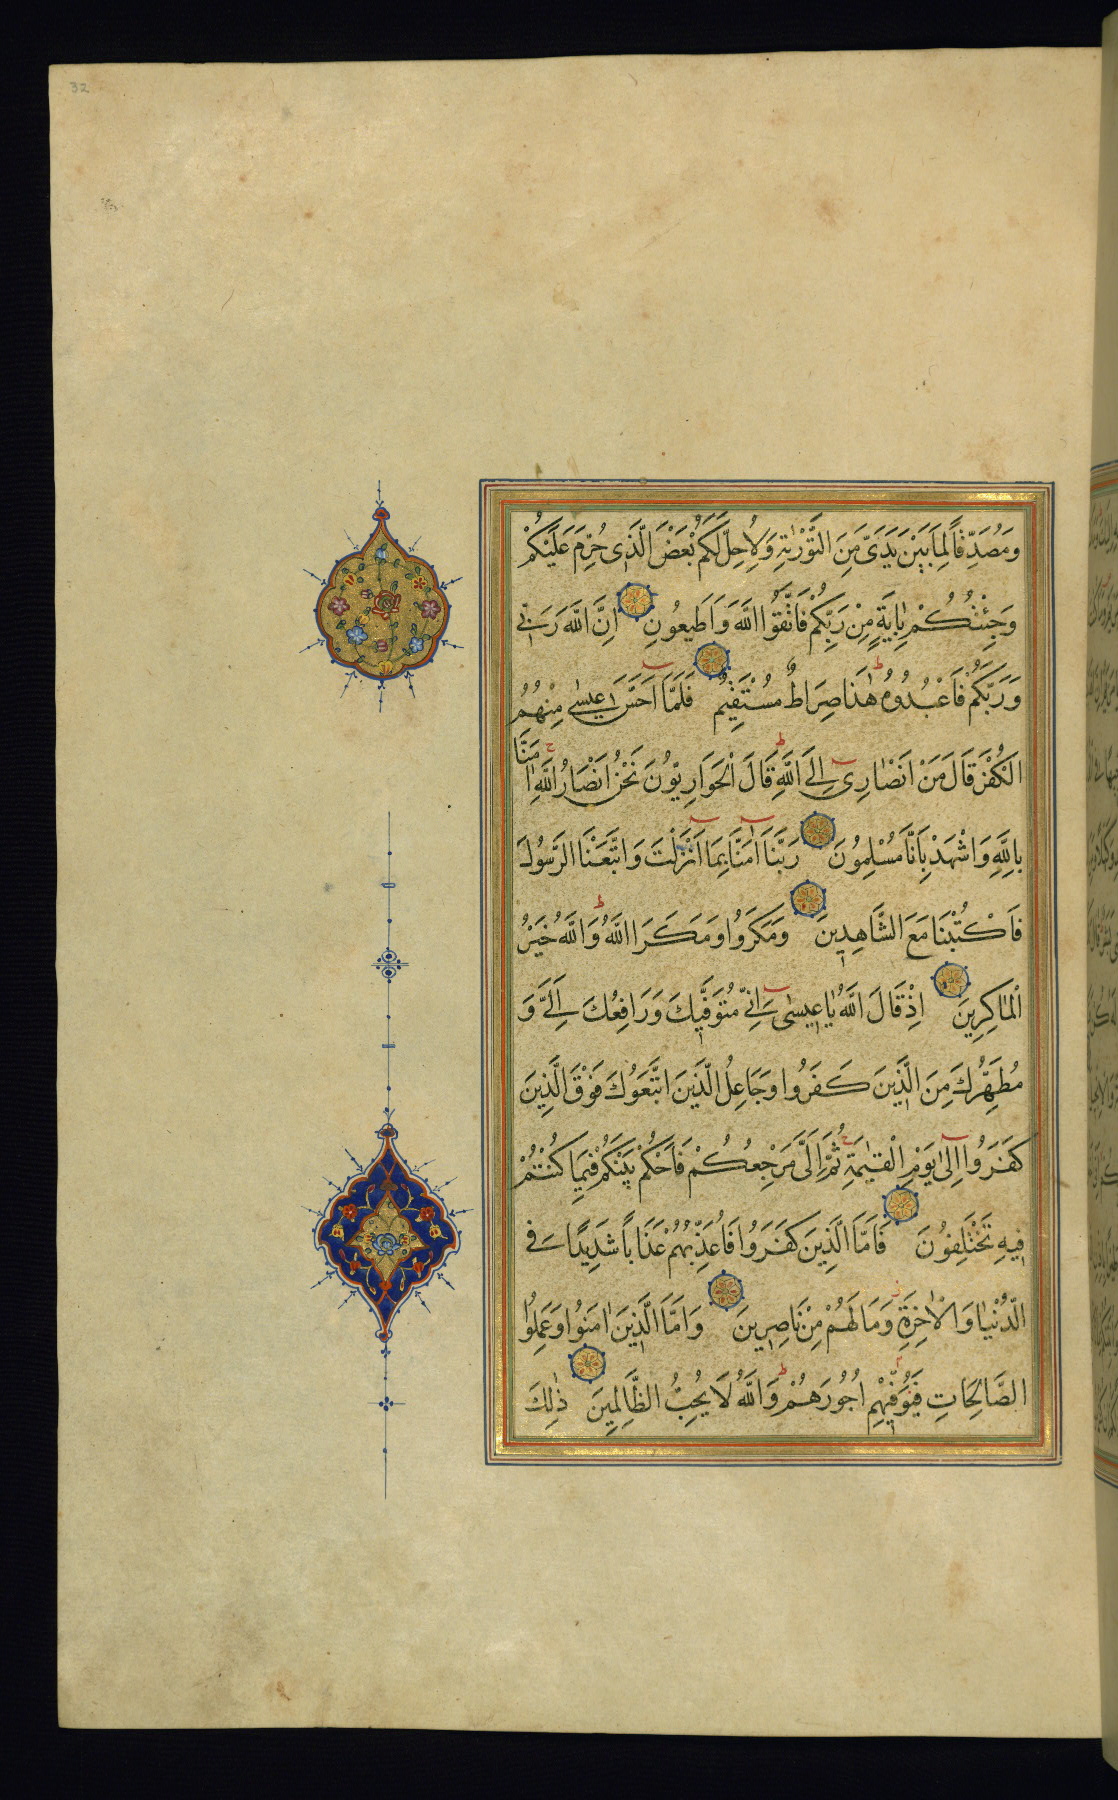 32
وَمُصَدِّقًا لِمَا بَيْنَ يَدَيَّ مِنَ التَّوْرٰيةِ وَلِاُحِلَّ لَكُمْ بَعْضَ الَّذِى حُرِّمَ عَلَيْكُمْ
وَجِئْتُكُمْ بِاٰيَةٍ مِنْ رَبِّكُمْ فَاتَّقُوا اللّٰهَ وَاَطِيعُونِ اِنَّ اللّٰهَ رَبّى
وَرَبُّكُمْ فَاعْبُدُوهُ هٰذَا صِرَاطٌ مُسْتَقِيمٌ فَلَمَّا اَحَسَّ عِيسٰى مِنْهُمُ
الْكُفْرَ قَالَ مَنْ اَنْصَارِى اِلَى اللّٰهِ قَالَ الْحَوَارِيّوُنَ نَحْنُ اَنْصَارُ اللّٰهِ اٰمَنَّا
بِاللّٰهِ وَاشْهَدْ بِاَنَّا مُسْلِمُونَ رَبَّنَا اٰمَنَّا بِمَا اَنْزَلْتَ وَاتَّبَعْنَا الرَّسُولَ
فَاكْتُبْنَا مَعَ الشَّاهِدِينَ وَمَكَرُوا وَمَكَرَ اللّٰهُ وَاللّٰهُ خَيْرُ
الْمَاكِرِينَ اِذْ قَالَ اللّٰهُ يَا عِيسٰى اِنّى مُتَوَفِّيكَ وَرَافِعُكَ اِلَىَّ وَ
مُطَهِّرُكَ مِنَ الَّذِينَ كَفَرُوا وَجَاعِلُ الَّذِينَ اتَّبَعُوكَ فَوْقَ الَّذِينَ
كَفَرُوا اِلٰى يَوْمِ الْقِيٰمَةِ ثُمَّ اِلَىَّ مَرْجِعُكُمْ فَاَحْكُمُ بَيْنَكُمْ فِيمَا كُنْتُمْ
فِيهِ تَخْتَلِفُونَ فَاَمَّا الَّذِينَ كَفَرُوا فَاُعَذِّبُهُمْ عَذَابًا شَدِيدًا فى
الدُّنْيَا وَالْاٰخِرَةِ وَمَا لَهُمْ مِنْ نَاصِرِينَ وَاَمَّا الَّذِينَ اٰمَنُوا وَعَمِلُوا
الصَّالِحَاتِ فَيُوَفِّيهِمْ اُجُورَهُمْ وَاللّٰهُ لَا يُحِبُّ الظَّالِمِينَ ذٰلِكَ